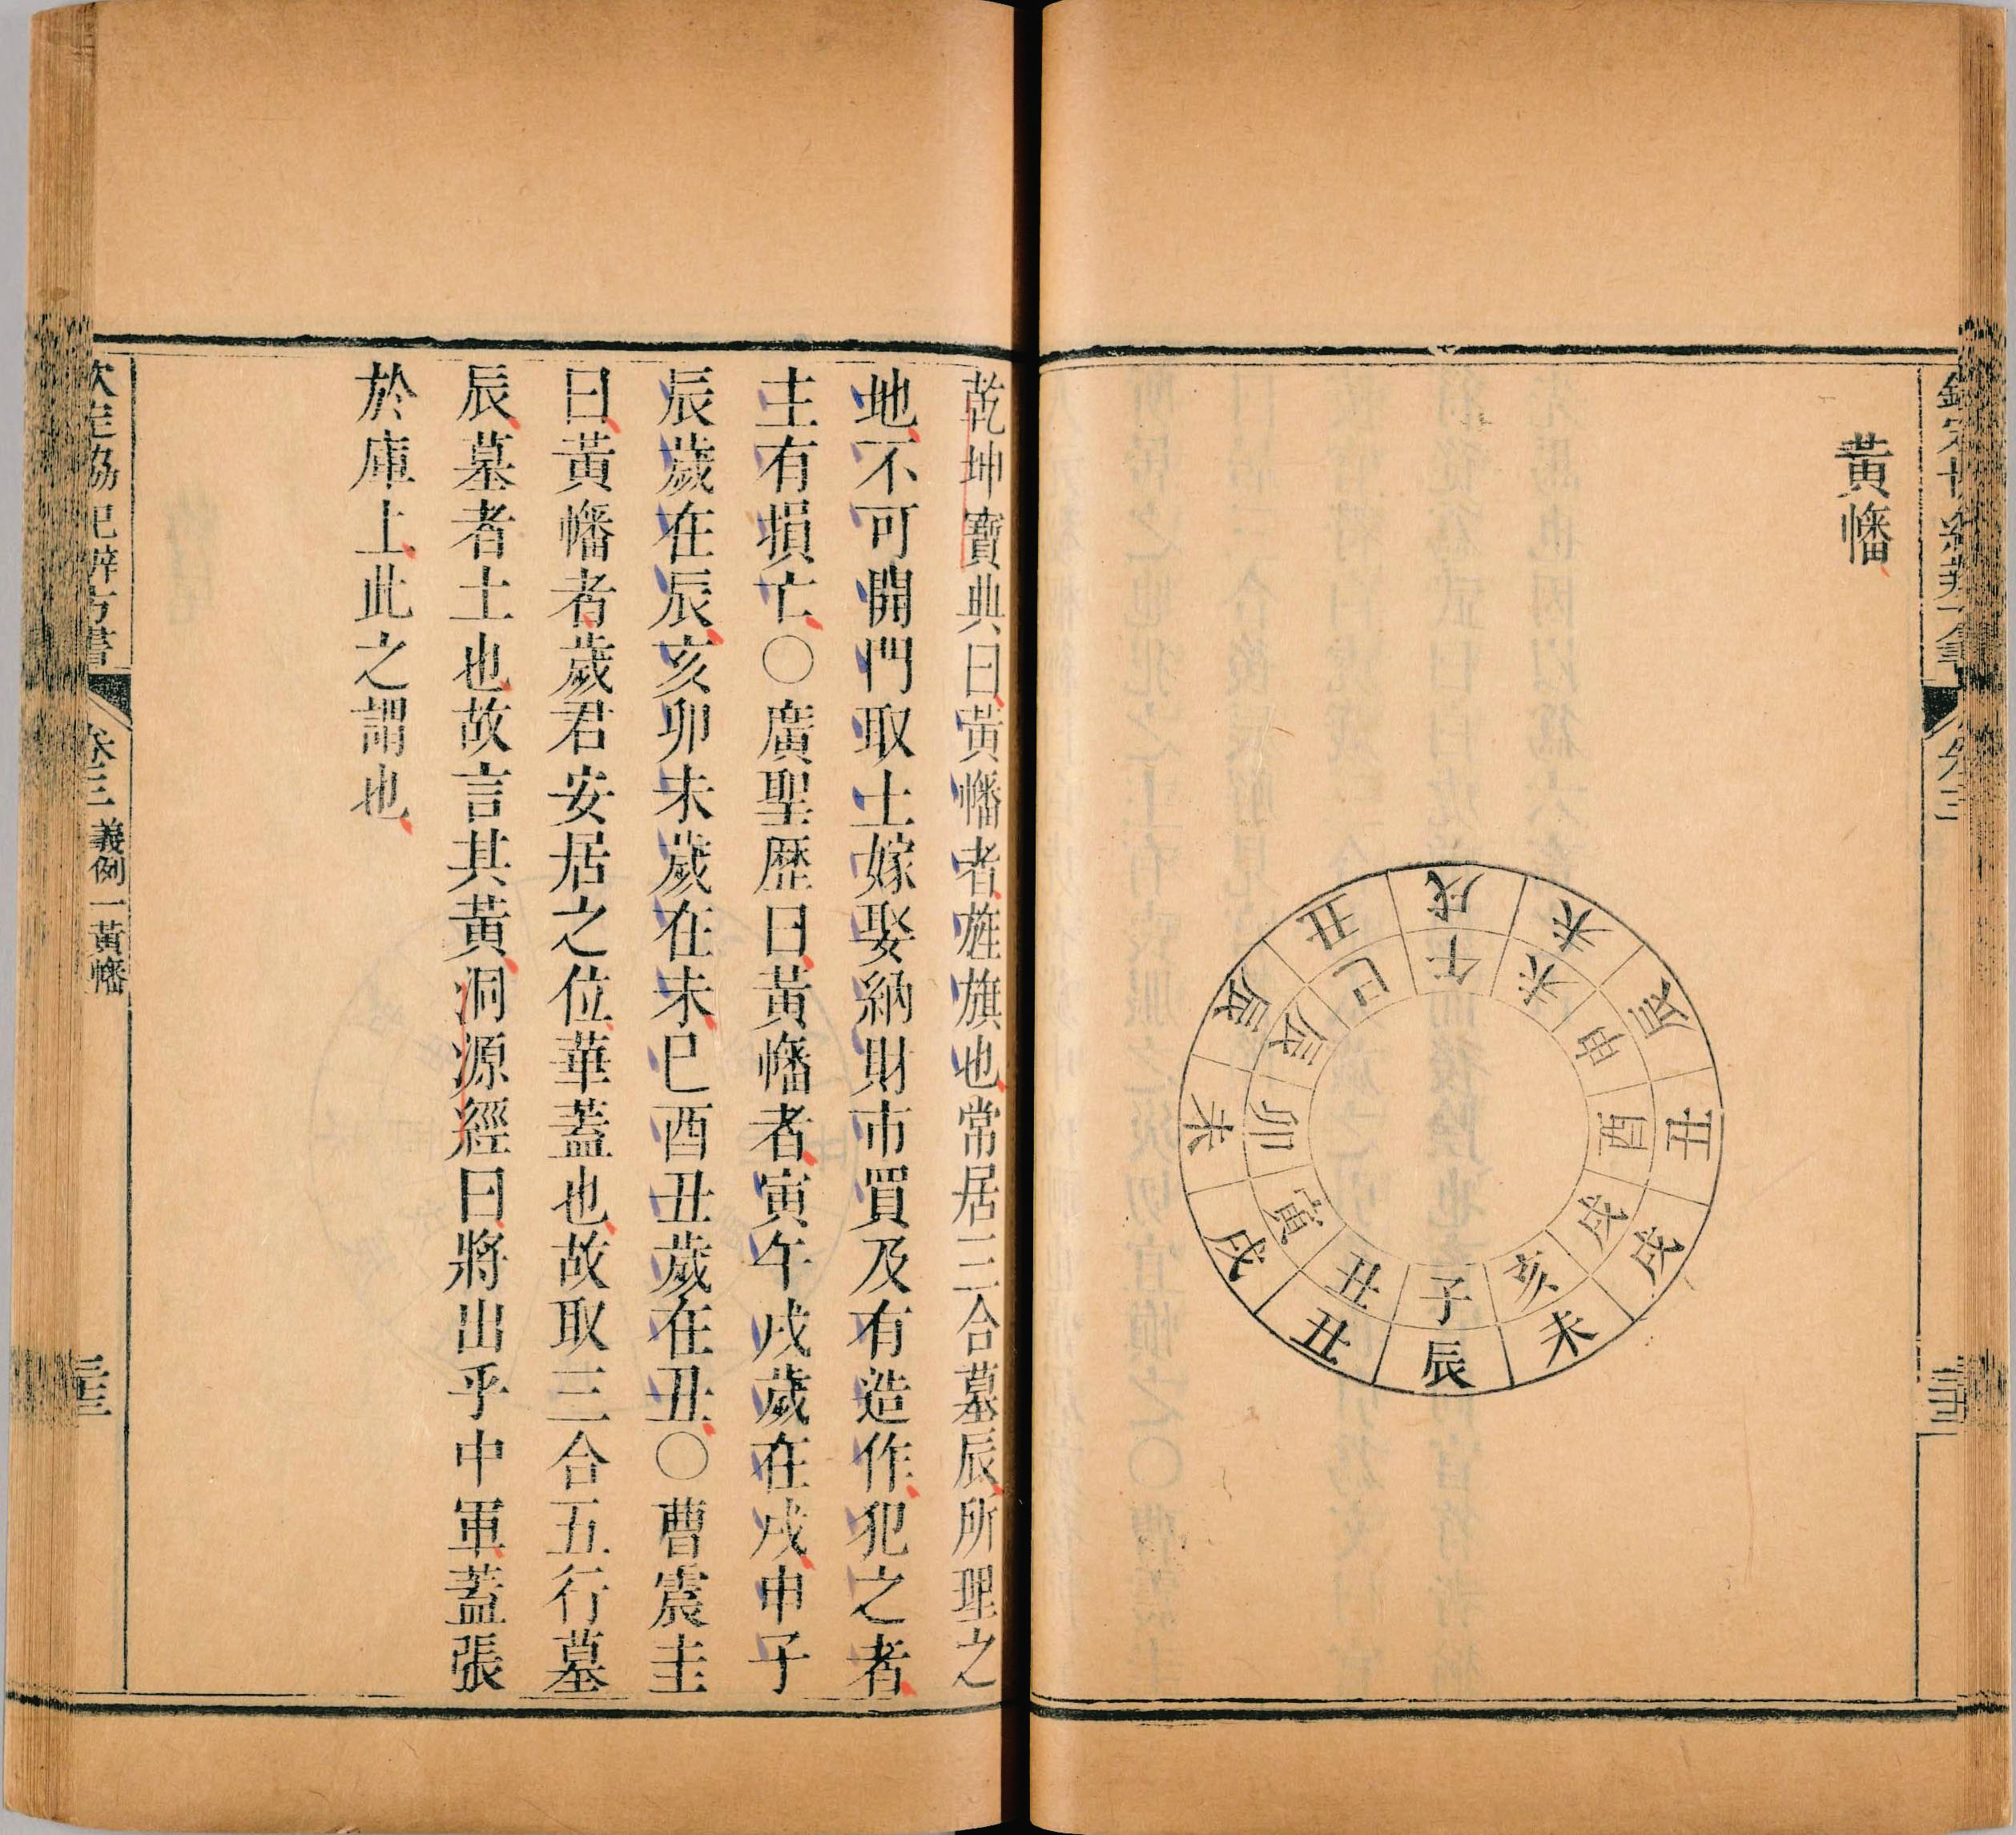 黃幡
戌
午
未
未
辰
申
丑
酉
戌
戌
未
亥
辰
子
丑
丑
戌
寅
未
卯
辰
辰
丑
巳
乾坤寶典曰黃幡者旌旗也常居三合墓辰所理之
地不可開門取土嫁娶納財市買及有造作犯之者
主有損亡○廣聖歷曰黃幡者寅午戌歲在戌申子
辰歲在辰亥卯未歲在未巳酉丑歲在丑○曹震圭
曰黃幡者歲君安居之位華蓋也故取三合五行墓
辰墓者土也故言其黃洞源經曰將出乎中軍蓋張
於庫上此之謂也
定協紀辨方書 卷三 義例一黃幡